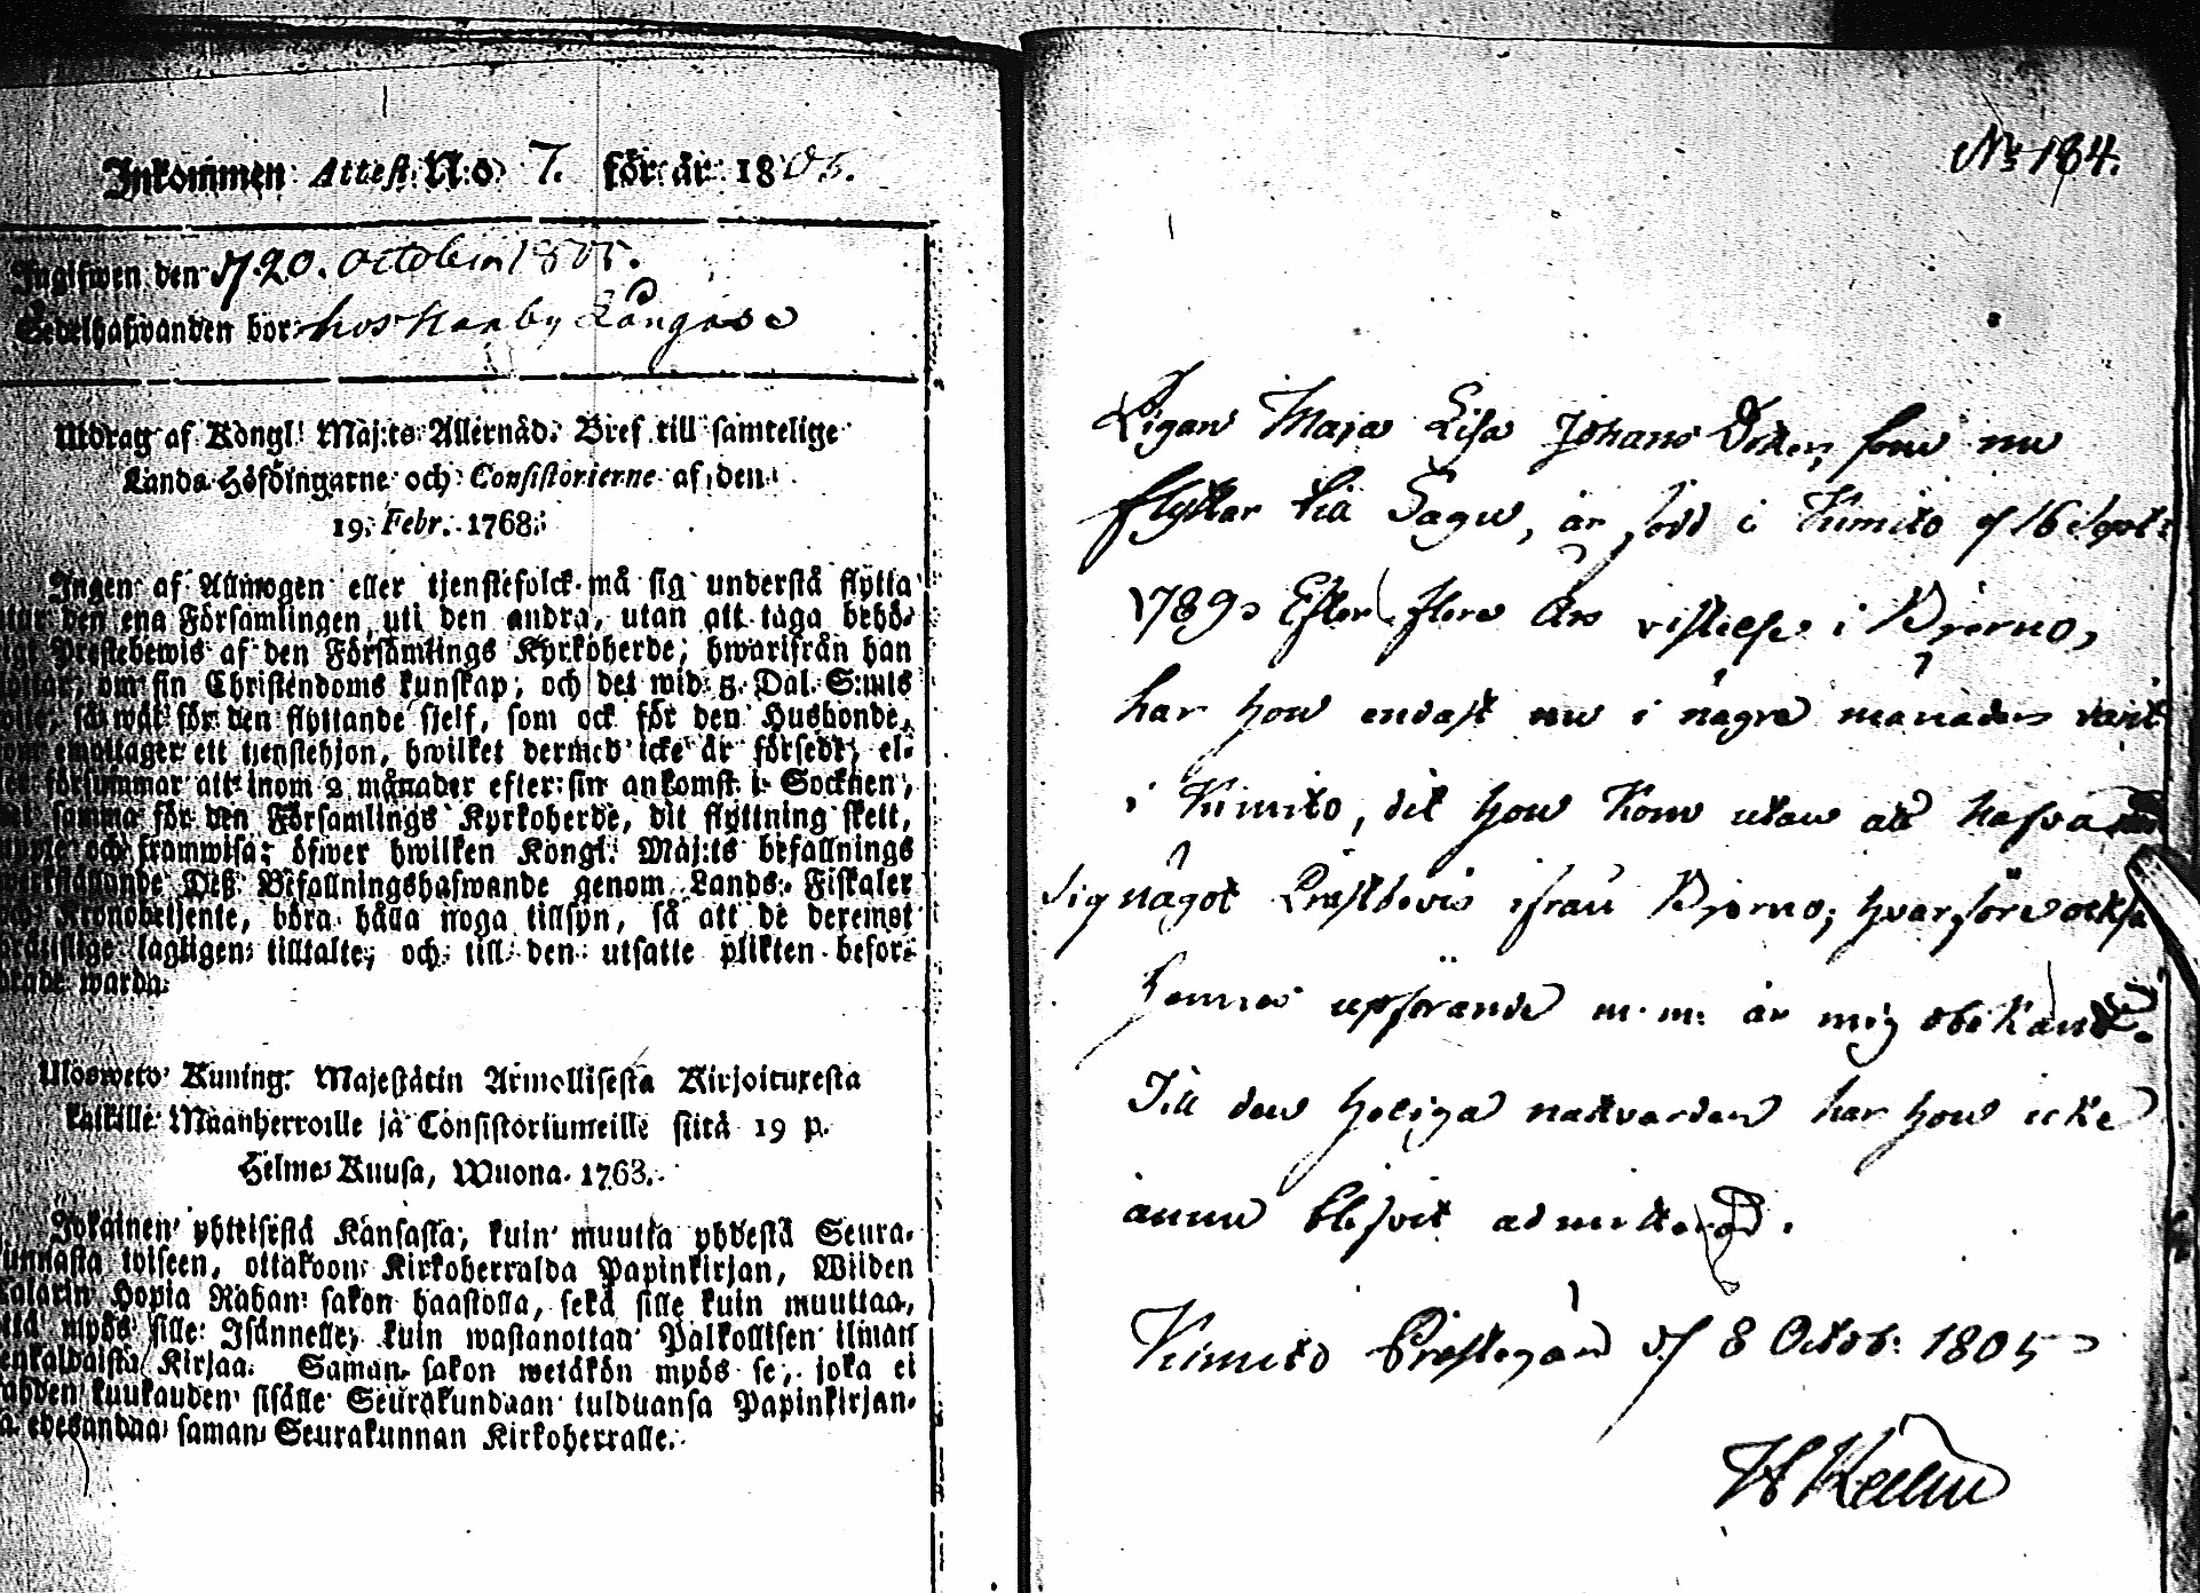 Inkommen Attest N:o 7. för år 1805.
Ingifwen den 20. October 1805.
Sedelhafwanden bor: hos
Utdrag af Kongl. Maj:ts Allernåd. Bref till samtelige
Lands-Höfdingarne och Consistorierne af den
19. Febr. 1768.
Ingen af Allmogen eller tjenstefolck må sig understå flytta
utur den ena Församlingen, uti den andra, utan att taga behö-
Prestebewis af den Församlings Kyrkoherde, hwarifrån han
om sin Christendoms kunskap, och det wid 5. Dal. S:mts
så wäl för den flyttande sjelf, som ock för den Husbonde,
som emottager ett tjenstehjon, hwilket dermed icke är försedt, el-
försummar att inom 2 månader efter sin ankomst i Socknen,
samma för den Församlings Kyrkoherde, dit flyttning skett,
och framwisa; öfwer hwilken Kongl. Maj:ts befallnings
Deß Befallningshafwande genom Lands-Fiskaler
Kronobetjente, böra hålla noga tillsyn, så att de deremot
lagligen tilltalte, och till den utsatte plikten befor-
drade warda.
Ulosweto Kuning. Majestätin Armollisesta Kirjoituxesta
kaikille Maanherroille ja Consistoriumeille siitä 19 p.
Helme-Kuusa, Wuona 1763.
Jokainen yhteisestä Kansasta, kuin muutta yhdestä Seura-
kunnasta toiseen, ottakoon Kirkoherralda Papinkirjan, Wiiden
Talarin Hopia Rahan sakon haastolla, sekä sille kuin muuttaa,
että myös sille Isännelle, kuin wastanottaa Palkollisen ilman
Kirjaa. Saman sakon wetäkön myös se, joka ei
kahden kuukauden sisälle Seurakundaan tulduansa Papinkirjan-
sa edesandaa saman Seurakunnan Kirkoherralle.
No 184.
Pigan Maja Lisa Johans Dotter, som nu
flyttar till Sagu, är född i Kimito d 16 Sept:
1789. Efter flere års vistelse i Bjerno,
har hon endast nu i några månader varit
i Kimito, dit hon kom utan att hafva
sig något Prästbevis ifrån Bjerno; hvarföre också
hennes upförande m.m. är mig obekandt.
Till den heliga nattvarden har hon icke
ännu blifvit admitterad.
Kimito Prestegård d 8 Octob: 1805